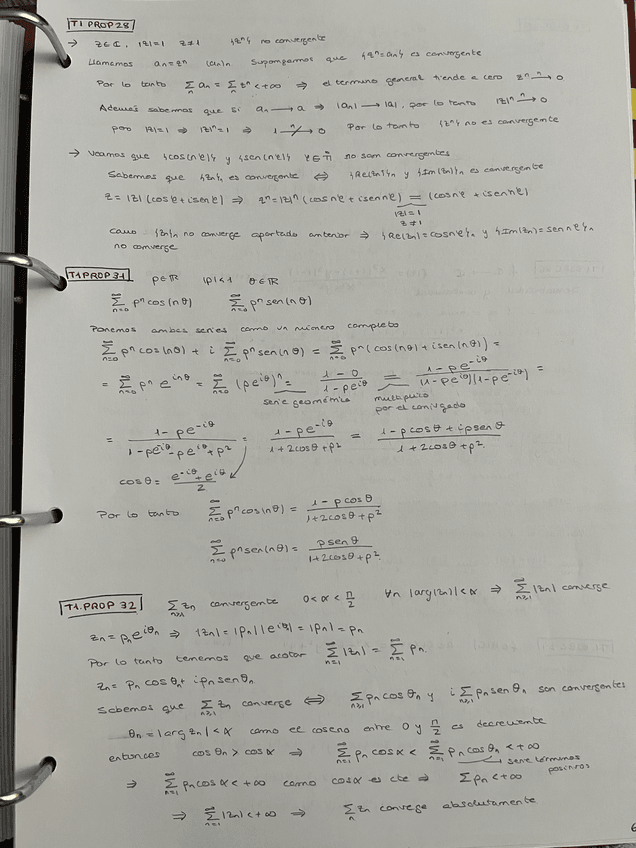 T1 PROP 28
→ z∈ℂ, |z|=1 z≠1 {zⁿ} no convergente
Llamemos aₙ=zⁿ {aₙ}ₙ Supongamos que {zⁿ=aₙ} es convergente
Por lo tanto Σₙ aₙ = Σₙ zⁿ < +∞ ⇒ el termino general tiende a cero zⁿ →ⁿ 0
Además sabemos que si aₙ → a ⇒ |aₙ| → |a|, por lo tanto |z|ⁿ → 0
pero |z|=1 ⇒ |z|ⁿ=1 ⇒ 1 ↛ 0 Por lo tanto {zⁿ} no es convergente
→ Veamos que {cos(nφ)} y {sen(nφ)} no son convergentes
Sabemos que {zₙ}ₙ es convergente ⇔ {Re(zₙ)}ₙ y {Im(zₙ)}ₙ es convergente
z = |z| (cosφ + isenφ) ⇒ zⁿ = |z|ⁿ (cosnφ + isennφ) = (cosnφ + isennφ)
|z|=1
z≠1
Como {zₙ}ₙ no converge apartado anterior ⇒ {Re(zₙ)=cosnφ}ₙ y {Im(zₙ)=sennφ}ₙ
no converge
T1 PROP 31 ρ∈ℝ |ρ|<1 θ∈ℝ
Σₙ₌₀^∞ ρⁿcos(nθ) Σₙ₌₀^∞ ρⁿsen(nθ)
Ponemos ambas series como un número complejo
Σₙ₌₀^∞ ρⁿcos(nθ) + i Σₙ₌₀^∞ ρⁿsen(nθ) = Σₙ₌₀^∞ ρⁿ(cos(nθ) + isen(nθ)) =
= Σₙ₌₀^∞ ρⁿ e^{inθ} = Σₙ₌₀^∞ (ρe^{iθ})ⁿ = (1-0)/(1-ρe^{iθ}) = (1-ρe^{-iθ})/((1-ρe^{iθ})(1-ρe^{-iθ})) =
serie geométrica multiplico
por el conjugado
= (1-ρe^{-iθ})/(1-ρe^{iθ}-ρe^{-iθ}+ρ²) = (1-ρe^{-iθ})/(1+2cosθ+ρ²) = (1-ρcosθ+iρsenθ)/(1+2cosθ+ρ²)
cosθ = (e^{-iθ}+e^{iθ})/2
Por lo tanto Σₙ₌₀^∞ ρⁿcos(nθ) = (1-ρcosθ)/(1+2cosθ+ρ²)
Σₙ₌₀^∞ ρⁿsen(nθ) = (ρsenθ)/(1+2cosθ+ρ²)
T1. PROP 32 Σₙ≥₁ zₙ convergente 0<α<π/2 ∀n |arg(zₙ)|<α ⇒ Σₙ≥₁^∞ |zₙ| converge
zₙ = ρₙe^{iθₙ} ⇒ |zₙ| = |ρₙ||e^{iθ}| = |ρₙ| = ρₙ
Por lo tanto tenemos que acotar Σₙ₌₁^∞ |zₙ| = Σₙ₌₁^∞ ρₙ
zₙ = ρₙ cosθₙ + iρₙsenθₙ
Sabemos que Σₙ≥₁ zₙ converge ⇔ Σₙ≥₁ ρₙcosθₙ y i Σₙ≥₁ ρₙsenθₙ son convergentes
θₙ = |arg zₙ| < α como el coseno entre 0 y π/2 es decreciente
entonces cosθₙ > cosα ⇒ Σₙ₌₁^∞ ρₙcosα < Σₙ₌₁^∞ ρₙcosθₙ < +∞
serie términos
positivos
⇒ Σₙ₌₁^∞ ρₙcosα < +∞ como cosα es cte ⇒ Σρₙ < +∞
⇒ Σₙ₌₁^∞ |zₙ| < +∞ ⇒ Σₙ zₙ converge absolutamente
6